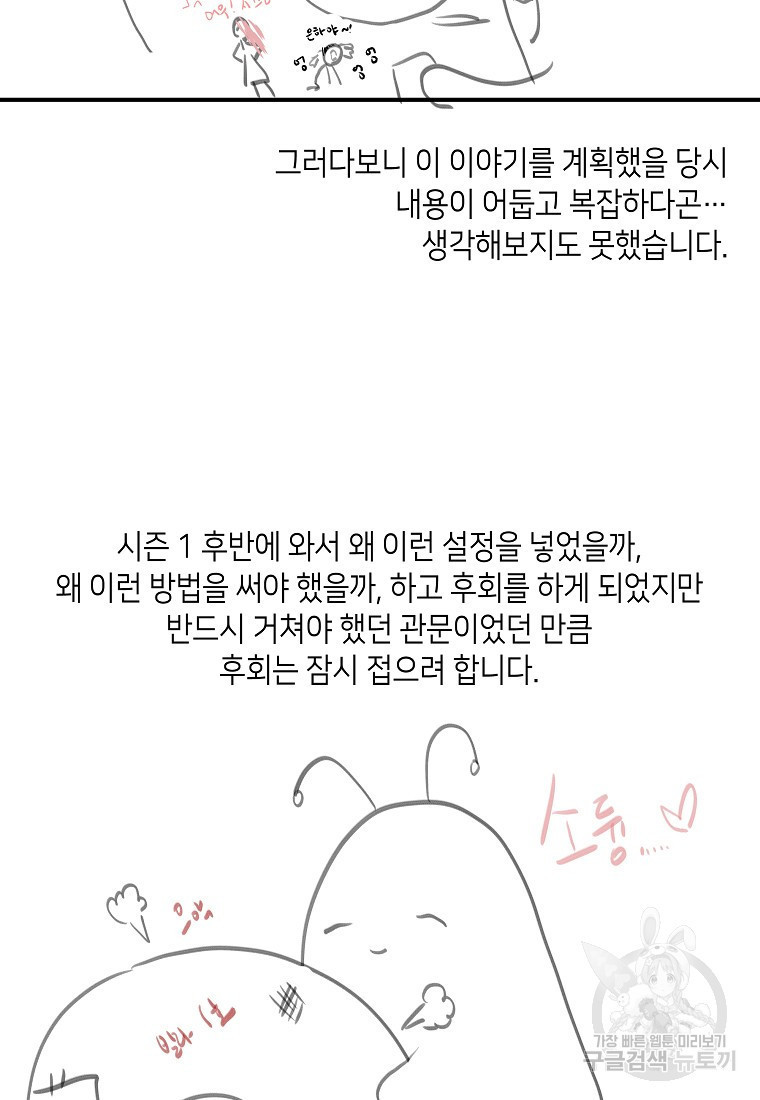 은하야~!
엉 엉
엉 엉
그러다보니 이 이야기를 계획했을 당시
내용이 어둡고 복잡하다곤…
생각해보지도 못했습니다.
시즌 1 후반에 와서 왜 이런 설정을 넣었을까,
왜 이런 방법을 써야 했을까, 하고 후회를 하게 되었지만
반드시 거쳐야 했던 관문이었던 만큼
후회는 잠시 접으려 합니다.
소듕.....♡
빌라 1호
가장 빠른 웹툰 미리보기
구글검색 뉴토끼